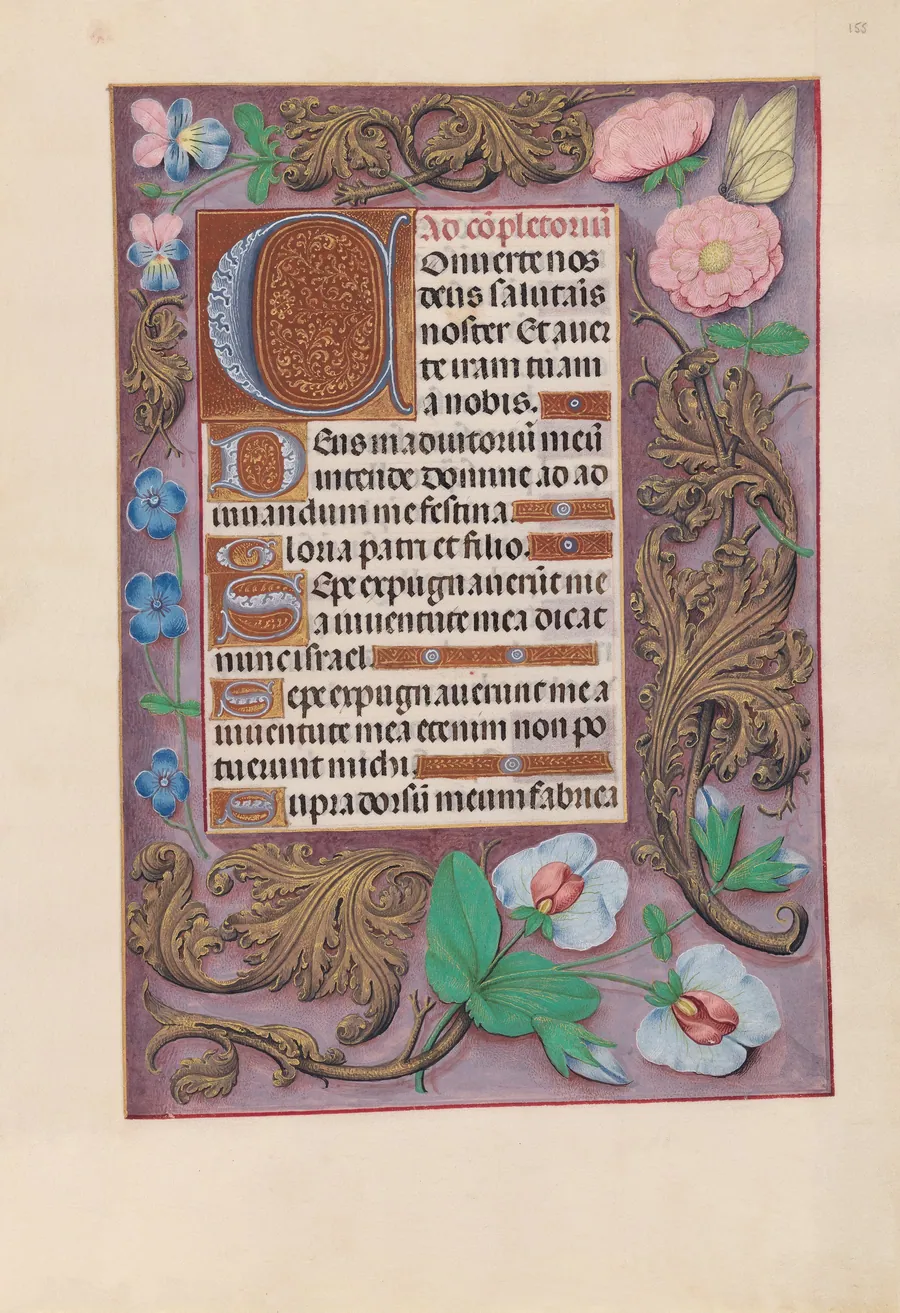 155
Ad cõpletoriũ
Conuerte nos
deus salutaris
noster Et auer
te iram tuam
a nobis.
Deus in adiutoriũ meũ
intende domine ad ad
iuuandum me festina.
Gloria patri et filio.
Sepe expugnauerũt me
a iuuentute mea dicat
nunc israel.
Sepe expugnauerunt me a
iuuentute mea etenim non po
tuerunt michi.
Supra dorsũ meum fabrica